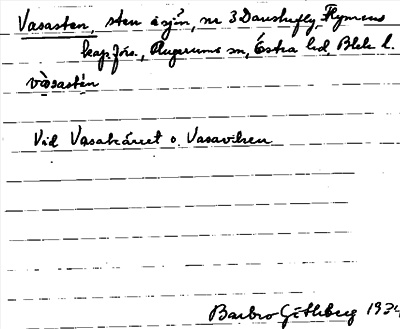 Vasasten, sten i sjön, nr 3 Danskefly, Flymens
kap.förs., Augerums sn, Östra hd, Blek. l.
va̱sastén
Vid Vasakärret o. Vasaviken
Barbro Götheberg 1934